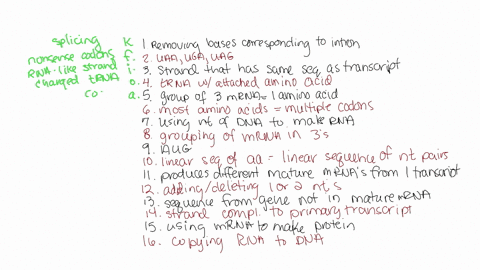 splicing k 1 Removing bases corresponding to intron
nonsense codons f. 2. UAA, UGA, UAG
RNA-like strand i. 3. Strand that has same seq as transcript
charged tRNA o. 4. tRNA w/ attached amino acid
co- a. 5. group of 3 mRNA = 1 amino acid
6. most amino acids = multiple codons
7. using nt of DNA to make RNA
8. grouping of mRNA in 3's
9. AUG
10. linear seq of aa = linear sequence of nt pairs
11. produces different mature mRNA's from 1 transcript
12. adding/deleting 1 or 2 nt's
13. sequence from gene not in mature mRNA
14. strand compl. to primary transcript
15. using mRNA to make protein
16. copying RNA to DNA